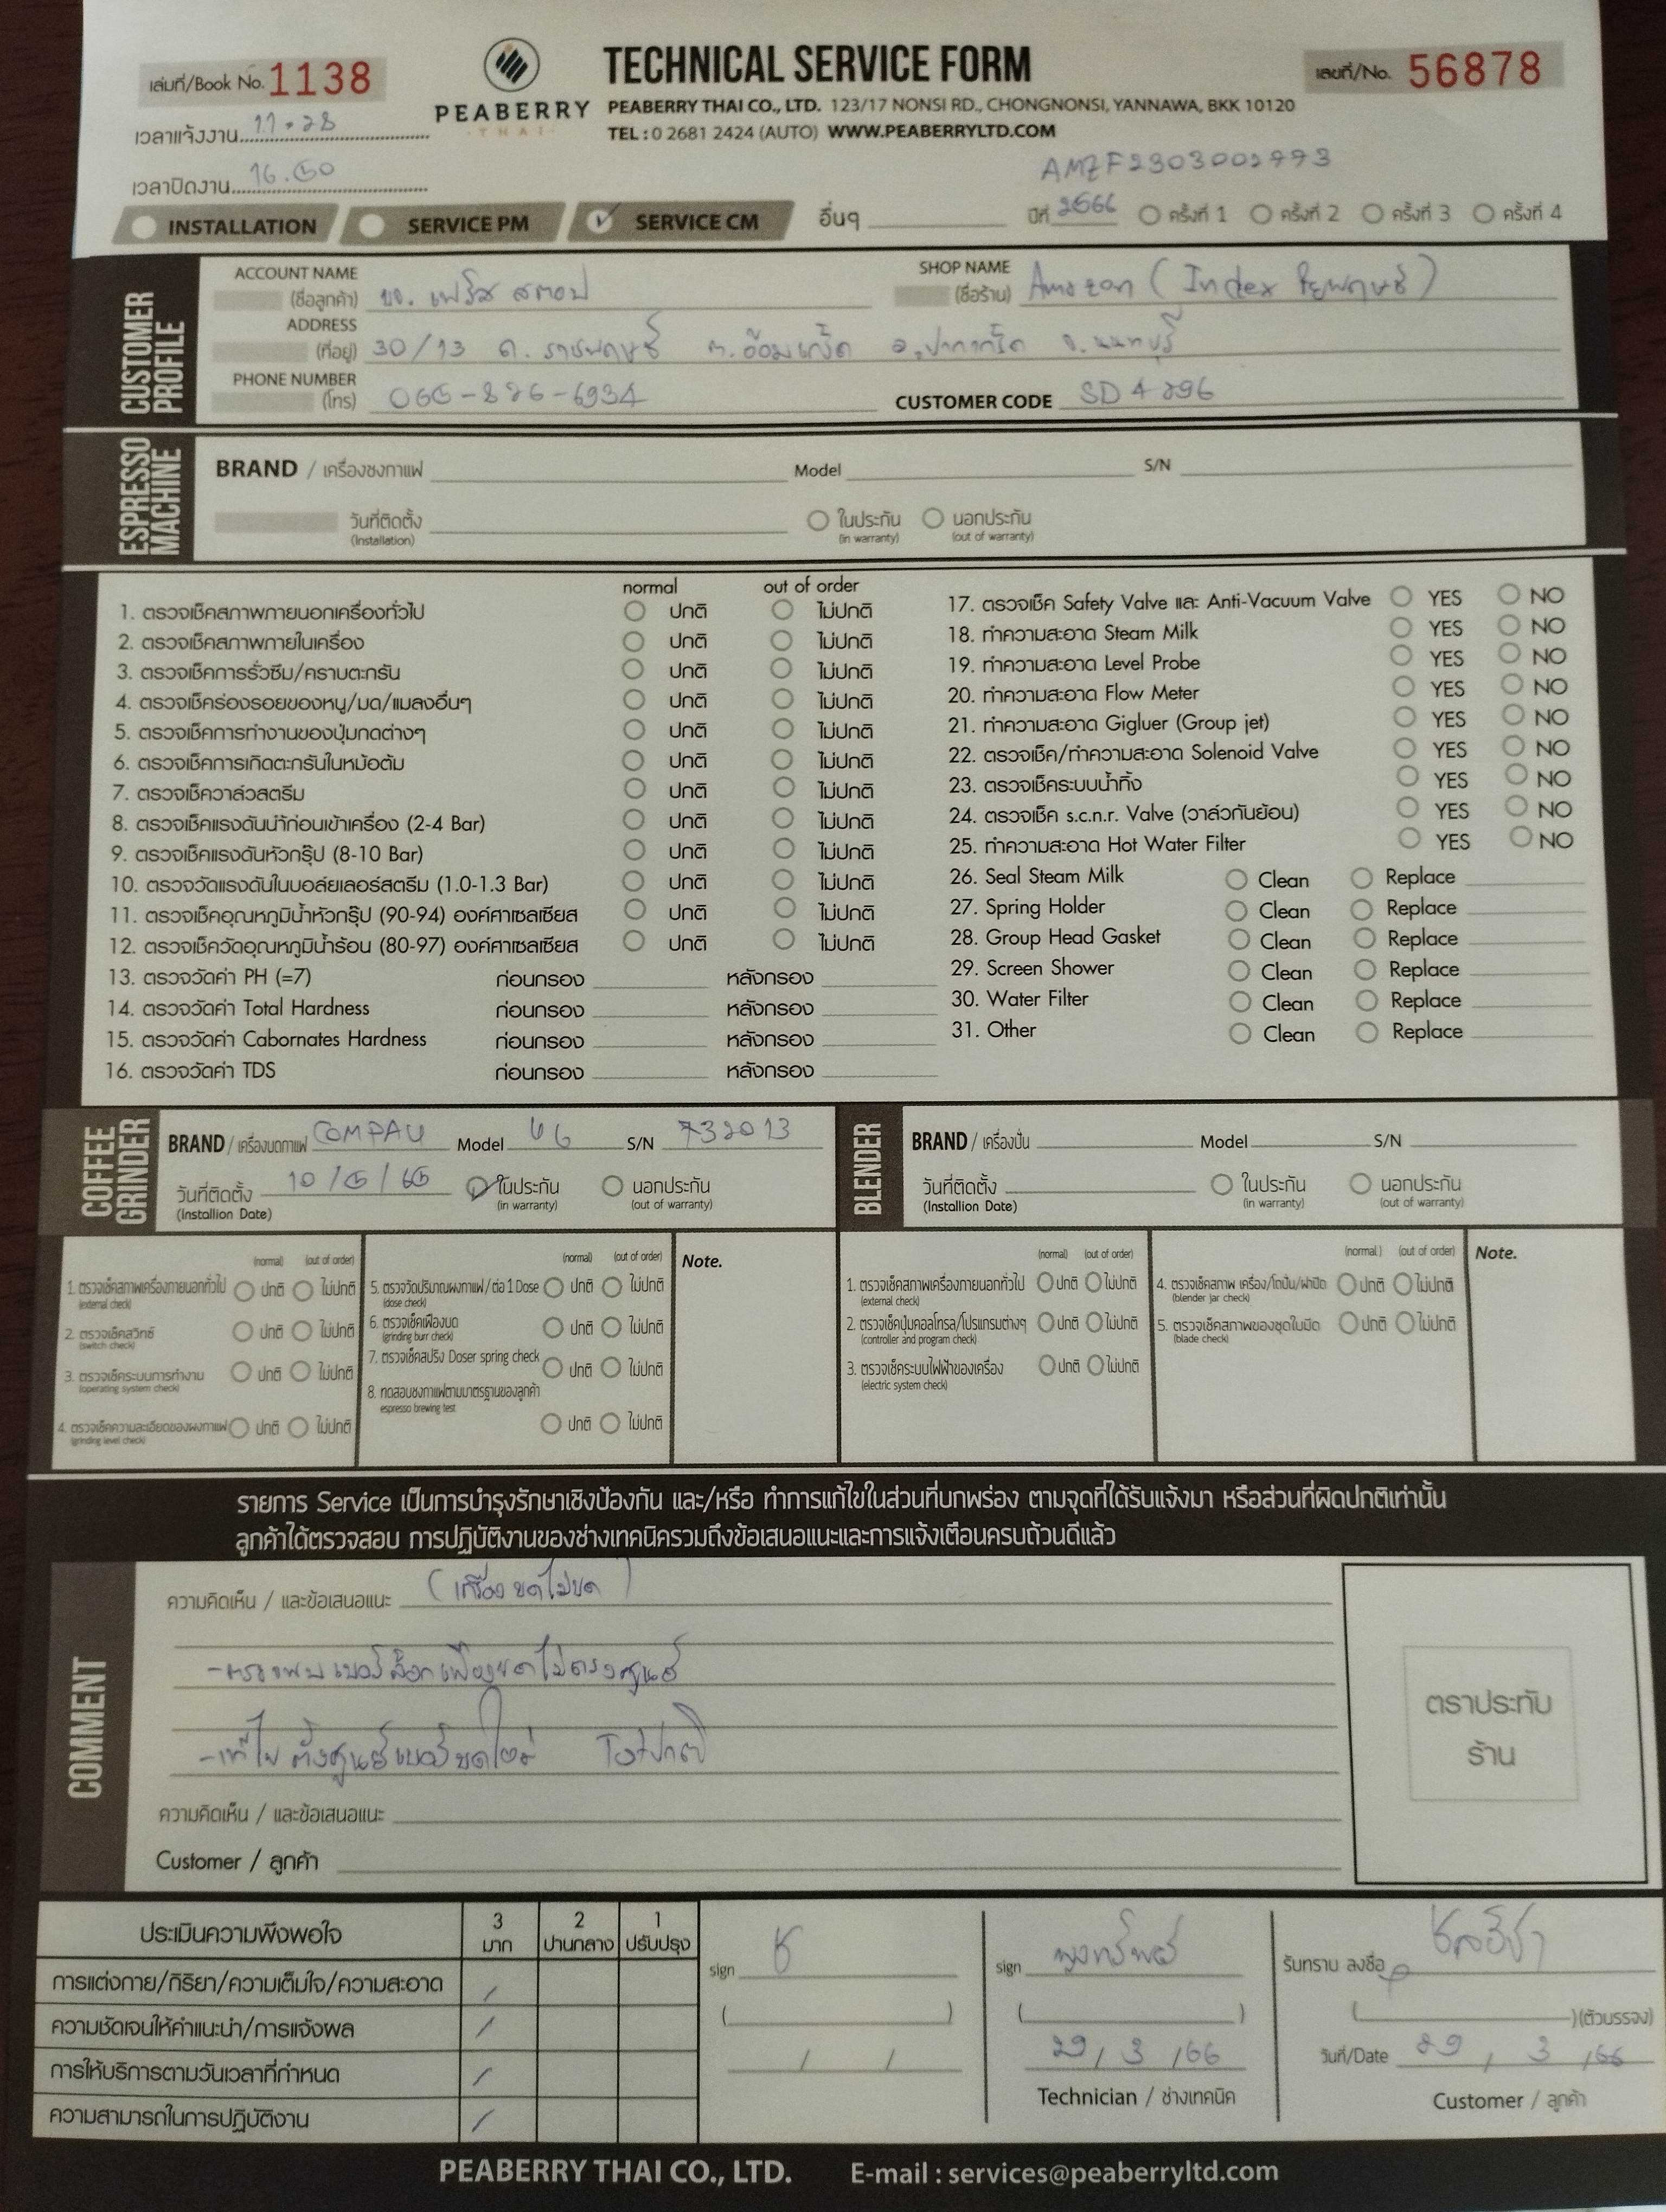 เล่มที่/Book No. 1138
PEABERRY
THAI
TECHNICAL SERVICE FORM
เลขที่/No. 56878
PEABERRY THAI CO., LTD. 123/17 NONSI RD., CHONGNONSI, YANNAWA, BKK 10120
TEL : 0 2681 2424 (AUTO) WWW.PEABERRYLTD.COM
เวลาแจ้งงาน 11.28
เวลาปิดงาน 16.50
AMZF2303002993
INSTALLATION SERVICE PM SERVICE CM อื่นๆ ปีที่ 2566 ครั้งที่ 1 ครั้งที่ 2 ครั้งที่ 3 ครั้งที่ 4
CUSTOMER PROFILE
ACCOUNT NAME (ชื่อลูกค้า) บจ. เฟริส สตอป
SHOP NAME (ชื่อร้าน) Amazon (Index ชัยพฤกษ์)
ADDRESS (ที่อยู่) 30/13 ถ. ราชพฤกษ์ ต. อ้อมเกร็ด อ. ปากเกร็ด จ. นนทบุรี
PHONE NUMBER (โทร) 065-826-6934 CUSTOMER CODE SD4296
ESPRESSO MACHINE
BRAND / เครื่องชงกาแฟ Model S/N
วันที่ติดตั้ง (Installation) ในประกัน (in warranty) นอกประกัน (out of warranty)
normal out of order
1. ตรวจเช็คสภาพภายนอกเครื่องทั่วไป ปกติ ไม่ปกติ
2. ตรวจเช็คสภาพภายในเครื่อง ปกติ ไม่ปกติ
3. ตรวจเช็คการรั่วซึม/คราบตะกรัน ปกติ ไม่ปกติ
4. ตรวจเช็คร่องรอยของหนู/มด/แมลงอื่นๆ ปกติ ไม่ปกติ
5. ตรวจเช็คการทำงานของปุ่มกดต่างๆ ปกติ ไม่ปกติ
6. ตรวจเช็คการเกิดตะกรันในหม้อต้ม ปกติ ไม่ปกติ
7. ตรวจเช็ควาล์วสตรีม ปกติ ไม่ปกติ
8. ตรวจเช็คแรงดันน้ำก่อนเข้าเครื่อง (2-4 Bar) ปกติ ไม่ปกติ
9. ตรวจเช็คแรงดันหัวกรุ๊ป (8-10 Bar) ปกติ ไม่ปกติ
10. ตรวจวัดแรงดันในบอล์ยเลอร์สตรีม (1.0-1.3 Bar) ปกติ ไม่ปกติ
11. ตรวจเช็คอุณหภูมิน้ำหัวกรุ๊ป (90-94) องศ์ศาเซลเซียส ปกติ ไม่ปกติ
12. ตรวจเช็ควัดอุณหภูมิน้ำร้อน (80-97) องศ์ศาเซลเซียส ปกติ ไม่ปกติ
13. ตรวจวัดค่า PH (=7) ก่อนกรอง หลังกรอง
14. ตรวจวัดค่า Total Hardness ก่อนกรอง หลังกรอง
15. ตรวจวัดค่า Cabornates Hardness ก่อนกรอง หลังกรอง
16. ตรวจวัดค่า TDS ก่อนกรอง หลังกรอง
17. ตรวจเช็ค Safety Valve และ Anti-Vacuum Valve YES NO
18. ทำความสะอาด Steam Milk YES NO
19. ทำความสะอาด Level Probe YES NO
20. ทำความสะอาด Flow Meter YES NO
21. ทำความสะอาด Gigluer (Group jet) YES NO
22. ตรวจเช็ค/ทำความสะอาด Solenoid Valve YES NO
23. ตรวจเช็คระบบน้ำทิ้ง YES NO
24. ตรวจเช็ค s.c.n.r. Valve (วาล์วกันย้อน) YES NO
25. ทำความสะอาด Hot Water Filter YES NO
26. Seal Steam Milk Clean Replace
27. Spring Holder Clean Replace
28. Group Head Gasket Clean Replace
29. Screen Shower Clean Replace
30. Water Filter Clean Replace
31. Other Clean Replace
COFFEE GRINDER
BRAND / เครื่องบดกาแฟ COMPAU Model S/N 732013
วันที่ติดตั้ง (Installion Date) 10/5/65 ในประกัน (in warranty) นอกประกัน (out of warranty)
BLENDER
BRAND / เครื่องปั่น Model S/N
วันที่ติดตั้ง (Installion Date) ในประกัน (in warranty) นอกประกัน (out of warranty)
(normal) (out of order)
1. ตรวจเช็คสภาพเครื่องภายนอกทั่วไป (external check) ปกติ ไม่ปกติ
2. ตรวจเช็คสวิทซ์ (switch check) ปกติ ไม่ปกติ
3. ตรวจเช็คระบบการทำงาน (operating system check) ปกติ ไม่ปกติ
4. ตรวจเช็คความละเอียดของผงกาแฟ (grinding level check) ปกติ ไม่ปกติ
(normal) (out of order)
5. ตรวจวัดปริมาณผงกาแฟ/ต่อ 1 Dose (dose check) ปกติ ไม่ปกติ
6. ตรวจเช็คเฟืองบด (grinding burr check) ปกติ ไม่ปกติ
7. ตรวจเช็คสปริง Doser spring check ปกติ ไม่ปกติ
8. ทดสอบชงกาแฟตามมาตรฐานของลูกค้า espresso brewing test ปกติ ไม่ปกติ
Note.
(normal) (out of order)
1. ตรวจเช็คสภาพเครื่องภายนอกทั่วไป (external check) ปกติ ไม่ปกติ
2. ตรวจเช็คปุ่มคอลโทรล/โปรแกรมต่างๆ (controller and program check) ปกติ ไม่ปกติ
3. ตรวจเช็คระบบไฟฟ้าของเครื่อง (electric system check) ปกติ ไม่ปกติ
(normal) (out of order)
4. ตรวจเช็คสภาพ เครื่อง/โถปั่น/ฝาปิด (blender jar check) ปกติ ไม่ปกติ
5. ตรวจเช็คสภาพของชุดใบมีด (blade check) ปกติ ไม่ปกติ
Note.
รายการ Service เป็นการบำรุงรักษาเชิงป้องกัน และ/หรือ ทำการแก้ไขในส่วนที่บกพร่อง ตามจุดที่ได้รับแจ้งมา หรือส่วนที่ผิดปกติเท่านั้น
ลูกค้าได้ตรวจสอบ การปฏิบัติงานของช่างเทคนิครวมถึงข้อเสนอแนะและการแจ้งเตือนครบถ้วนดีแล้ว
COMMENT
ความคิดเห็น / และข้อเสนอแนะ (เครื่องบดไม่บด)
-ตรวจพบ เบอร์ล็อกเฟืองบดไม่ตรงศูนย์
-แก้ไข ตั้งศูนย์เบอร์บดใหม่ ใช้ปกติ
ความคิดเห็น / และข้อเสนอแนะ
Customer / ลูกค้า
ตราประทับ
ร้าน
ประเมินความพึงพอใจ 3 มาก 2 ปานกลาง 1 ปรับปรุง
การแต่งกาย/กิริยา/ความเต็มใจ/ความสะอาด /
ความชัดเจนให้คำแนะนำ/การแจ้งผล /
การให้บริการตามวันเวลาที่กำหนด /
ความสามารถในการปฏิบัติงาน /
sign
( )
/ /
sign
( )
29/3/66
Technician / ช่างเทคนิค
รับทราบ ลงชื่อ
( ) (ตัวบรรจง)
วันที่/Date 29/3/66
Customer / ลูกค้า
PEABERRY THAI CO., LTD. E-mail : services@peaberryltd.com